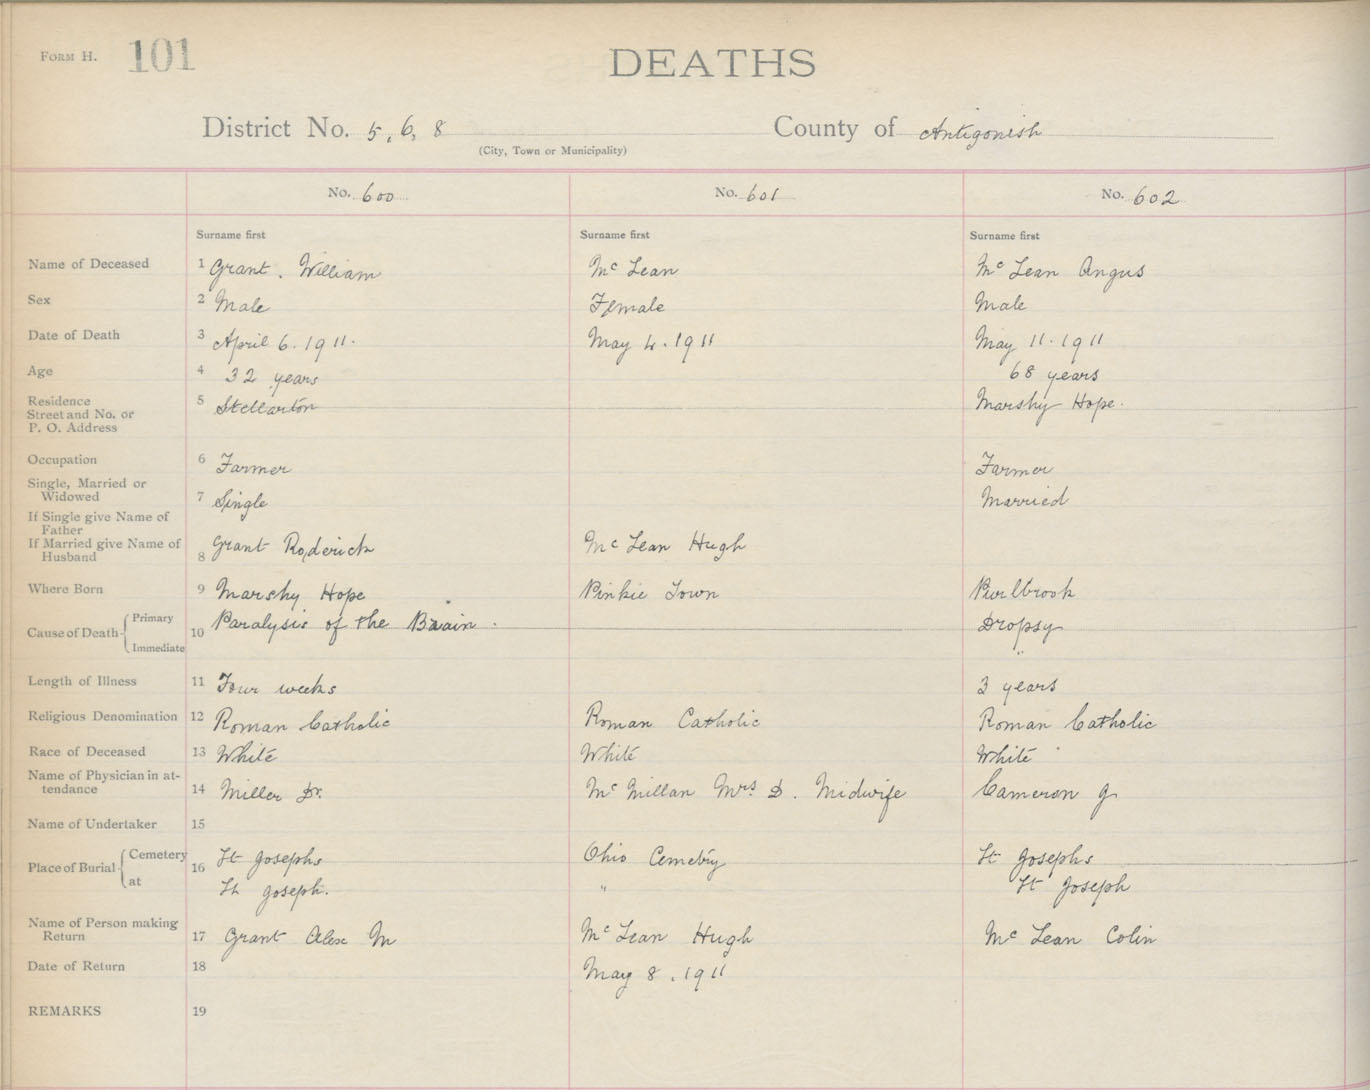 Form H. 101
DEATHS
District No. 5, 6, 8 County of Antigonish
(City, Town or Municipality)
No. 600 No. 601 No. 602
Surname first Surname first Surname first
Name of Deceased 1 Grant. William Mc Lean Mc Lean Angus
Sex 2 Male Female Male
Date of Death 3 April 6. 1911. May 4. 1911 May 11. 1911
Age 4 32 years 68 years
Residence
Street and No. or
P. O. Address
5 Stellarton Marshy Hope.
Occupation 6 Farmer Farmer
Single, Married or
Widowed
7 Single Married
If Single give Name of
Father
If Married give Name of
Husband
8 Grant Roderick Mc Lean Hugh
Where Born 9 Marshy Hope Pinkie Town Purlbrook
Cause of Death Primary
Immediate
10 Paralysis of the Brain. Dropsy
"
Length of Illness 11 Four weeks 3 years
Religious Denomination 12 Roman Catholic Roman Catholic Roman Catholic
Race of Deceased 13 White White White
Name of Physician in at-
tendance
14 Miller Dr. Mc Millan Mrs D. Midwife Cameron J
Name of Undertaker 15
Place of Burial Cemetery
at
16 St Josephs Ohio Cemetry St Josephs
St Joseph. " St Joseph
Name of Person making
Return
17 Grant Alex M Mc Lean Hugh Mc Lean Colin
Date of Return 18 May 8. 1911
REMARKS 19